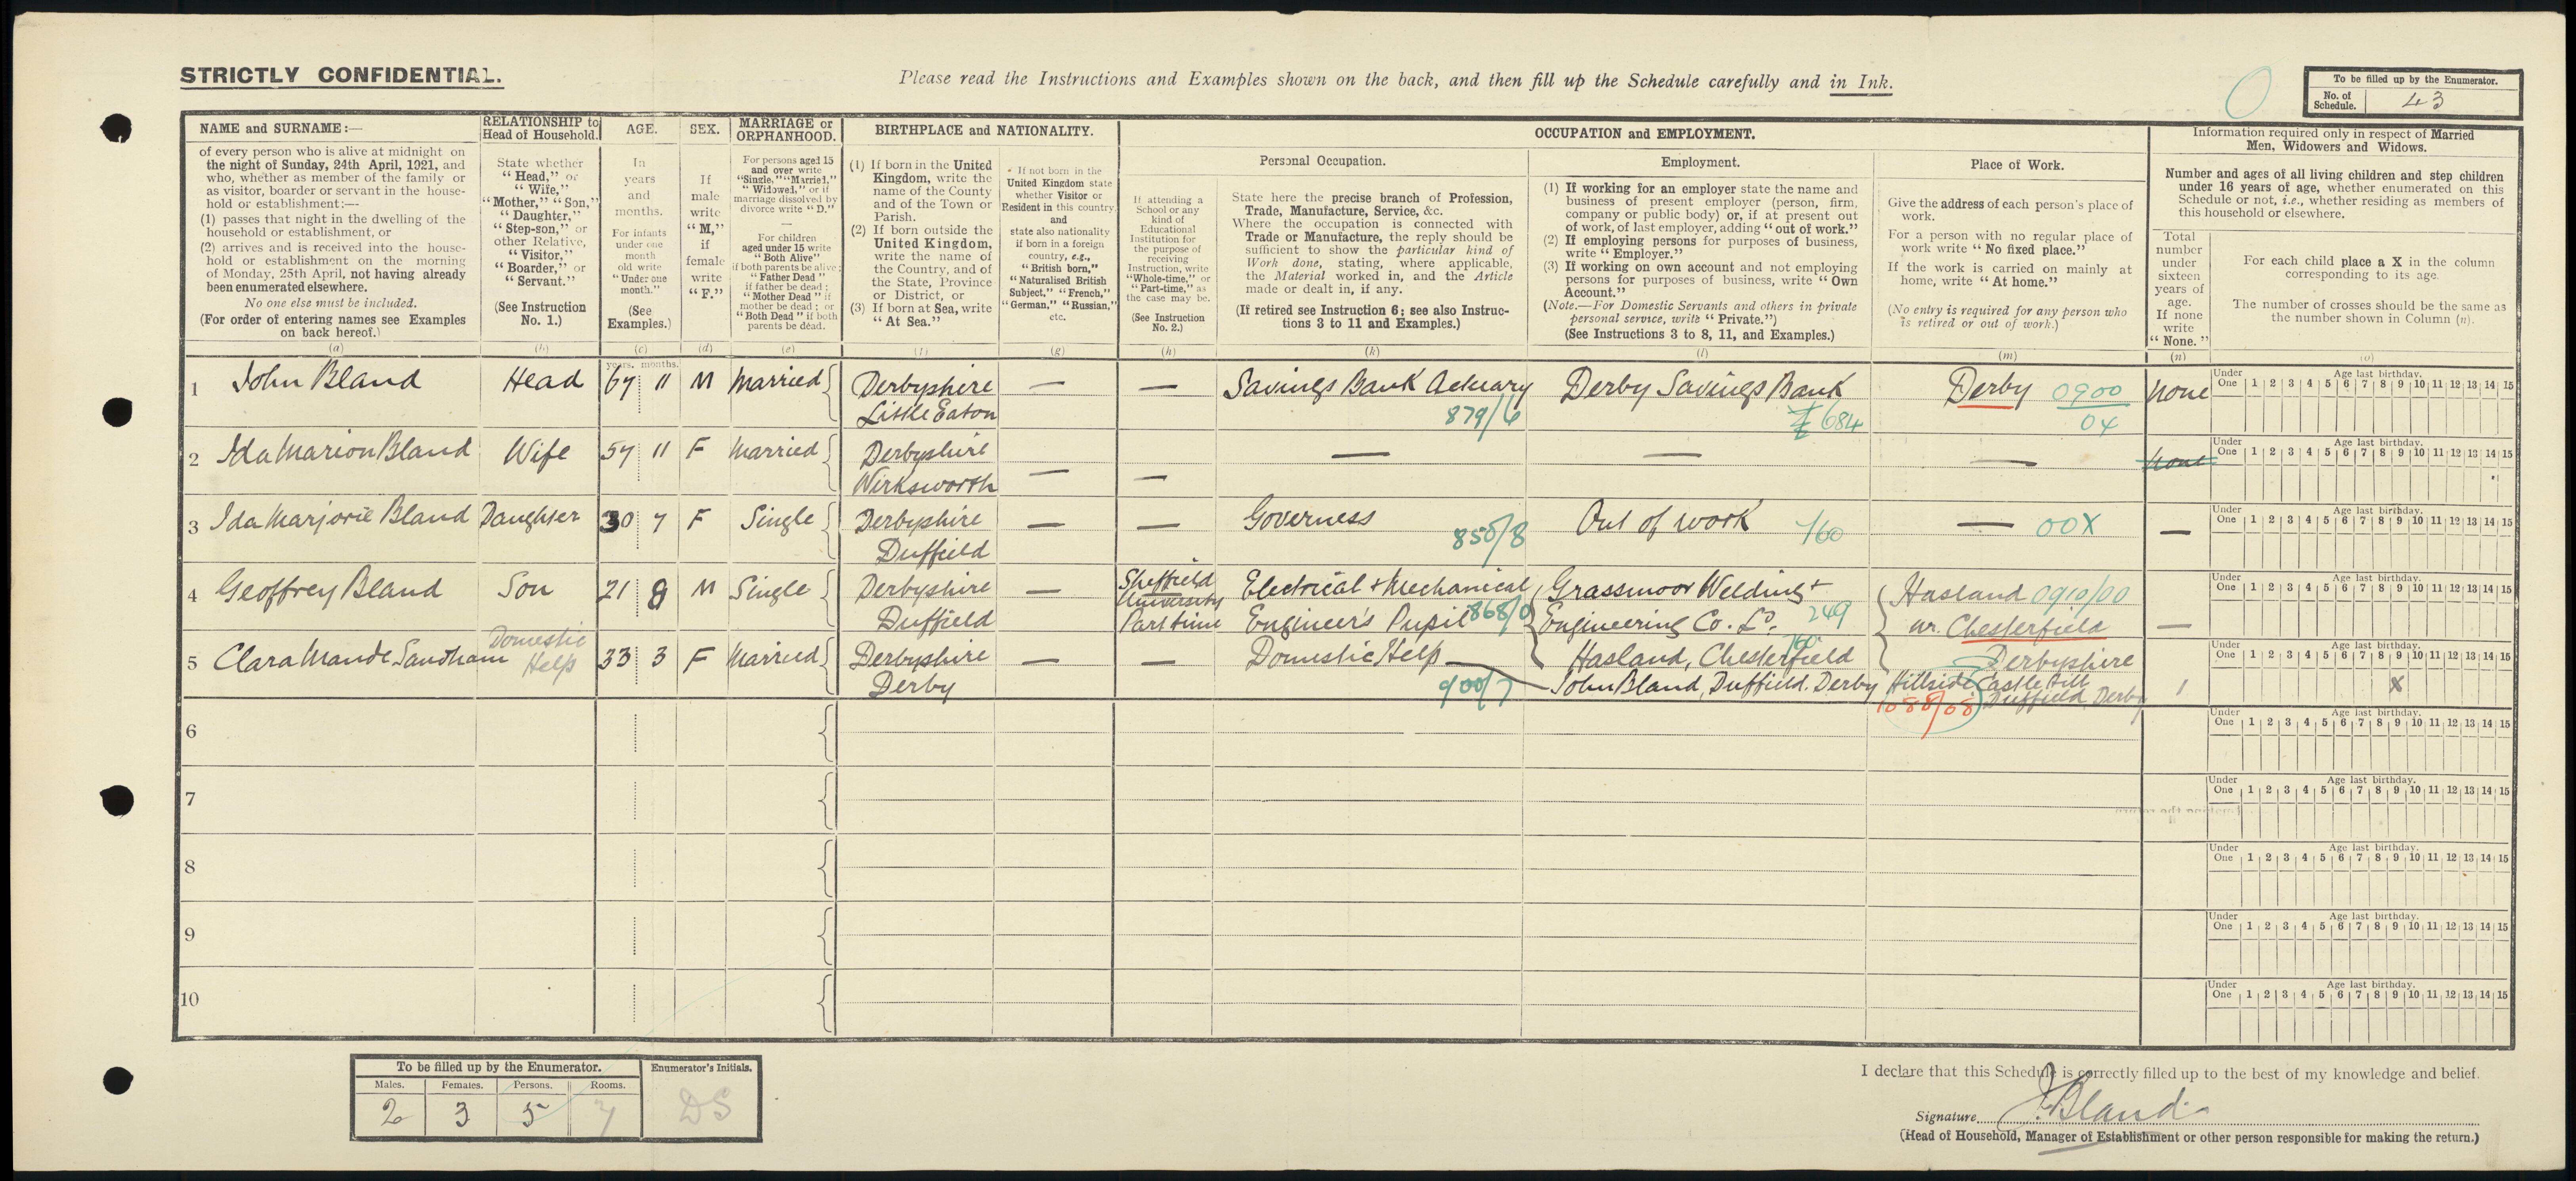 STRICTLY CONFIDENTIAL.
Please read the Instructions and Examples shown on the back, and then fill up the Schedule carefully and in Ink.
To be filled up by the Enumerator.
No. of Schedule. 43
NAME and SURNAME:—
of every person who is alive at midnight on
the night of Sunday, 24th April, 1921, and
who, whether as member of the family or
as visitor, boarder or servant in the house-
hold or establishment:—
(1) passes that night in the dwelling of the
household or establishment, or
(2) arrives and is received into the house-
hold or establishment on the morning
of Monday, 25th April, not having already
been enumerated elsewhere.
No one else must be included.
(For order of entering names see Examples
on back hereof.)
(a)
RELATIONSHIP to
Head of Household.
State whether
"Head," or
"Wife,"
"Mother," "Son,"
"Daughter,"
"Step-son," or
other Relative,
"Visitor,"
"Boarder," or
"Servant."
(See Instruction
No. 1.)
(b)
AGE.
In
years
and
months.
For infants
under one
month
old write
"Under one
month."
(See
Examples.)
(c)
years. months.
SEX.
If
male
write
"M,"
if
female
write
"F."
(d)
MARRIAGE or
ORPHANHOOD.
For persons aged 15
and over write
"Single," "Married,"
"Widowed," or if
marriage dissolved by
divorce write "D."
For children
aged under 15 write
"Both Alive"
if both parents be alive;
"Father Dead"
if father be dead;
"Mother Dead" if
mother be dead; or
"Both Dead" if both
parents be dead.
(e)
BIRTHPLACE and NATIONALITY.
(1) If born in the United
Kingdom, write the
name of the County
and of the Town or
Parish.
(2) If born outside the
United Kingdom,
write the name of
the Country, and of
the State, Province
or District, or
(3) If born at Sea, write
"At Sea."
(f)
If not born in the
United Kingdom state
whether Visitor or
Resident in this country,
and
state also nationality
if born in a foreign
country, e.g.,
"British born,"
"Naturalised British
Subject," "French,"
"German," "Russian,"
etc.
(g)
OCCUPATION and EMPLOYMENT.
If attending a
School or any
kind of
Educational
Institution for
the purpose of
receiving
Instruction, write
"Whole-time," or
"Part-time," as
the case may be.
(See Instruction
No. 2.)
(h)
Personal Occupation.
State here the precise branch of Profession,
Trade, Manufacture, Service, &c.
Where the occupation is connected with
Trade or Manufacture, the reply should be
sufficient to show the particular kind of
Work done, stating, where applicable,
the Material worked in, and the Article
made or dealt in, if any.
(If retired see Instruction 6; see also Instruc-
tions 3 to 11 and Examples.)
(k)
Employment.
(1) If working for an employer state the name and
business of present employer (person, firm,
company or public body) or, if at present out
of work, of last employer, adding "out of work."
(2) If employing persons for purposes of business,
write "Employer."
(3) If working on own account and not employing
persons for purposes of business, write "Own
Account."
(Note.—For Domestic Servants and others in private
personal service, write "Private.")
(See Instructions 3 to 8, 11, and Examples.)
(l)
Place of Work.
Give the address of each person's place of
work.
For a person with no regular place of
work write "No fixed place."
If the work is carried on mainly at
home, write "At home."
(No entry is required for any person who
is retired or out of work.)
(m)
Information required only in respect of Married
Men, Widowers and Widows.
Number and ages of all living children and step children
under 16 years of age, whether enumerated on this
Schedule or not, i.e., whether residing as members of
this household or elsewhere.
Total
number
under
sixteen
years of
age.
If none
write
"None."
(n)
For each child place a X in the column
corresponding to its age.
The number of crosses should be the same as
the number shown in Column (n).
(o)
1 John Bland Head 67 11 M Married Derbyshire — — Savings Bank Actuary Derby Savings Bank Derby 0900 None
Little Eaton 879/6 684 04
Under One 1 2 3 4 5 6 7 8 9 10 11 12 13 14 15 Age last birthday.
2 Ida Marion Bland Wife 57 11 F Married Derbyshire — — — — — None
Wirksworth
Under One 1 2 3 4 5 6 7 8 9 10 11 12 13 14 15 Age last birthday.
3 Ida Marjorie Bland Daughter 30 7 F Single Derbyshire — — Governess Out of work 760 — 00X —
Duffield 850/8
Under One 1 2 3 4 5 6 7 8 9 10 11 12 13 14 15 Age last birthday.
4 Geoffrey Bland Son 21 8 M Single Derbyshire — Sheffield University Electrical & Mechanical Grassmoor Welding & Hasland 0910/00
Duffield Part time Engineer's Pupil 868/0 Engineering Co. Ld. 249 nr. Chesterfield —
Under One 1 2 3 4 5 6 7 8 9 10 11 12 13 14 15 Age last birthday.
5 Clara Maude Sandham Domestic Help 33 3 F Married Derbyshire — — Domestic Help Hasland, Chesterfield 760 Derbyshire
Derby 900/7 John Bland, Duffield. Derby Hillside Castle Hill Duffield Derby 1 X
1088/08
Under One 1 2 3 4 5 6 7 8 9 10 11 12 13 14 15 Age last birthday.
6
Under One 1 2 3 4 5 6 7 8 9 10 11 12 13 14 15 Age last birthday.
7
Under One 1 2 3 4 5 6 7 8 9 10 11 12 13 14 15 Age last birthday.
8
Under One 1 2 3 4 5 6 7 8 9 10 11 12 13 14 15 Age last birthday.
9
Under One 1 2 3 4 5 6 7 8 9 10 11 12 13 14 15 Age last birthday.
10
Under One 1 2 3 4 5 6 7 8 9 10 11 12 13 14 15 Age last birthday.
To be filled up by the Enumerator.
Males. Females. Persons. Rooms.
2 3 5 7
Enumerator's Initials.
DS
I declare that this Schedule is correctly filled up to the best of my knowledge and belief.
Signature J. Bland
(Head of Household, Manager of Establishment or other person responsible for making the return.)